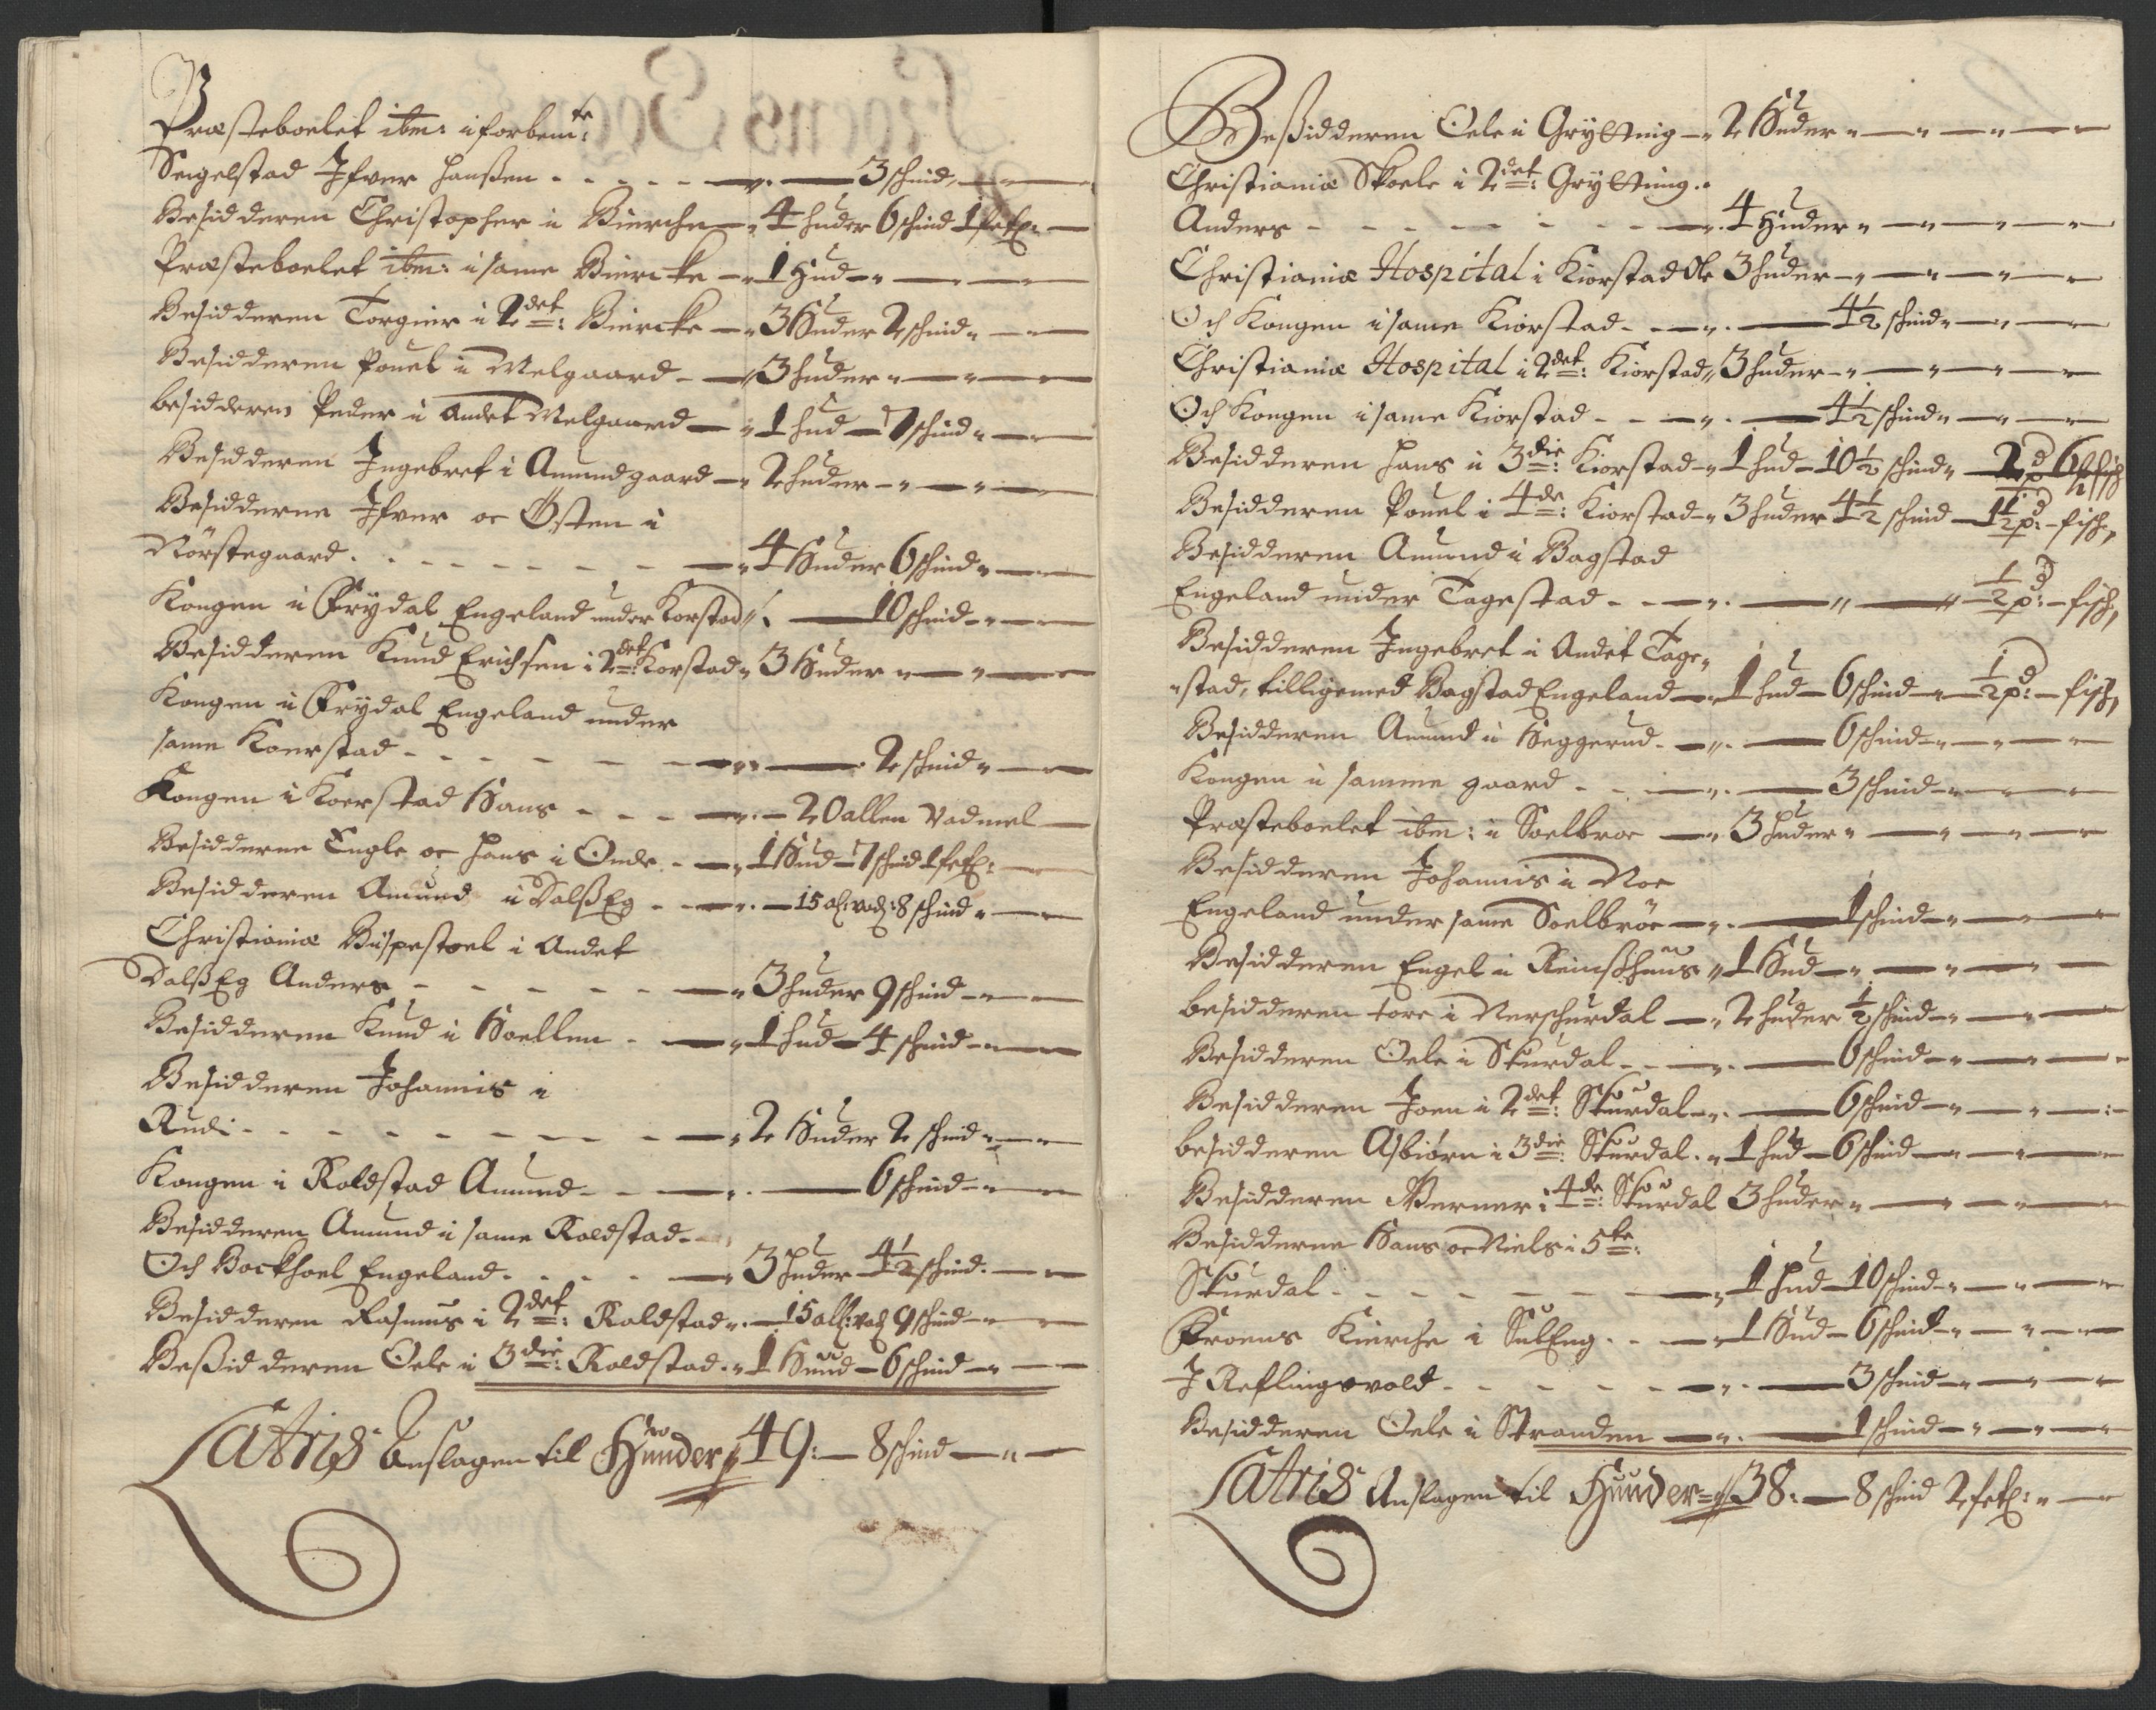 Præsteboelet ibm: i forbem:te
Seigelstad Ifver Hanßen - - - - - 3 schind
Besidderen Christopher i Bierche - 4 huder 6 schind 1 fetl:
Præsteboelet ibm: i same Biercke - 1 Hud
Besidderen Torgier i 2det: Biercke - 3 Huder 2 schind
Besidderen Pouel i Melgaard - 3 huder
besidderen Peder i Andet Melgaard - 1 hud - 7 schind
Besidderen Ingebret i Amundgaard - 2 huder
Besidderne Ifver oc Østen i
Nörstegaard - - - - 4 Huder 6 schind
Kongen i Frydal Engeland under Korstad - 10 schind
Besidderen Knud Erichsen i 2det: Korstad - 3 Huder
Kongen i Frydal Engeland under
same Koerstad - - - - 2 schind
Kongen i Koerstad Hans - - - 20 allen Vadmel
Besidderne Engle oc Hans i Onde - 1 Hud - 7 schind 1 fetl:
Besidderen Amund i DalßEg - - 15 al: vad: 8 schind
Christianiæ Bispestoel i Andet
DalßEg Anders - - - - 3 huder 9 schind
Besidderen Knud i Hoellen - 1 hud - 4 schind
Besidderen Johannis i
Rudi - - - - - 2 Huder 2 schind
Kongen i Roldstad Amund - - 6 schind
Besidderen Amund i same Roldstad -
Och Bockhoel Engeland - - - 3 Huder 4½ schind
Besidderen Rasmus i 2det: Roldstad - 15 all: vad: 9 schind
Beßidderen Oele i 3die: Roldstad - 1 Hund - 6 schind
Latris Anslagen til Hunder 49: - 8 schind
Beßidderen Oele i Grytting - 2 Huder
Christianiæ Skoele i 2det: Grytting
Anders - - - - - 4 Huder
Christianiæ Hospital i Kiorstad Ole 3 huder
Och Kongen i same Kiorstad - - 4½ schind
Christianiæ Hospital i 2det: Kiorstad 3 huder
Och Kongen i same Kiorstad - - 4½ schind
Besidderen Hans i 3die: Kiorstad - 1 hud - 10½ schind - 2 pd 6 fisch
Besidderen Pouel i 4de: Kiorstad - 3 huder 4½ schind - 1½ pd: - fisch,
Besidderen Amund i Bagstad
Engeland under Tagestad - - ½ pd: - fisch,
Besidderen Ingebret i Andet Tage-
-stad, tilligemed Bagstad Engeland - 1 hud - 6 schind - ½ pd: - fisch,
Besidderen Amund i Heggerud - 6 schind
Kongen i samme gaard - - 3 schind
Præsteboelet ibm: i Soelbroe - 3 Huder
Besidderen Johannis i Moe
Engeland under same Soelbröe - 1 schind
Besidderen Engel i Reinßhuus - 1 Hud
besidderen tore i Nerschurdal - 2 huder ½ schind
Besidderen Oele i Skurdal - - 6 schind
Besidderen Joen i 2det: Skurdal - 6 schind
besidderen Asbiørn i 3die: Skurdal - 1 hud - 6 schind
Besidderen Werner i 4de: Skurdal 3 huder
Besidderne Hans oc Niels i 5te:
Skurdal - - - - - 1 Hud - 10 schind
Froens Kierche i SulEng - - 1 Hud - 6 schind
I Reflingsvold - - - - 3 schind
Besidderen Oele i Stranden - 1 schind
Latris Anslagen til Huuder 38: - 8 schind 2 fetl: